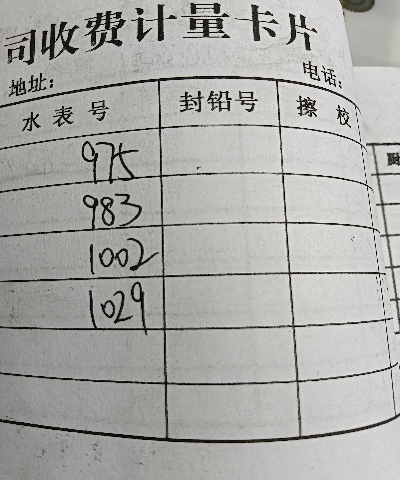 司收费计量卡片
地址： 电话：
水表号 封铅号 擦校
975
983
1002
1029